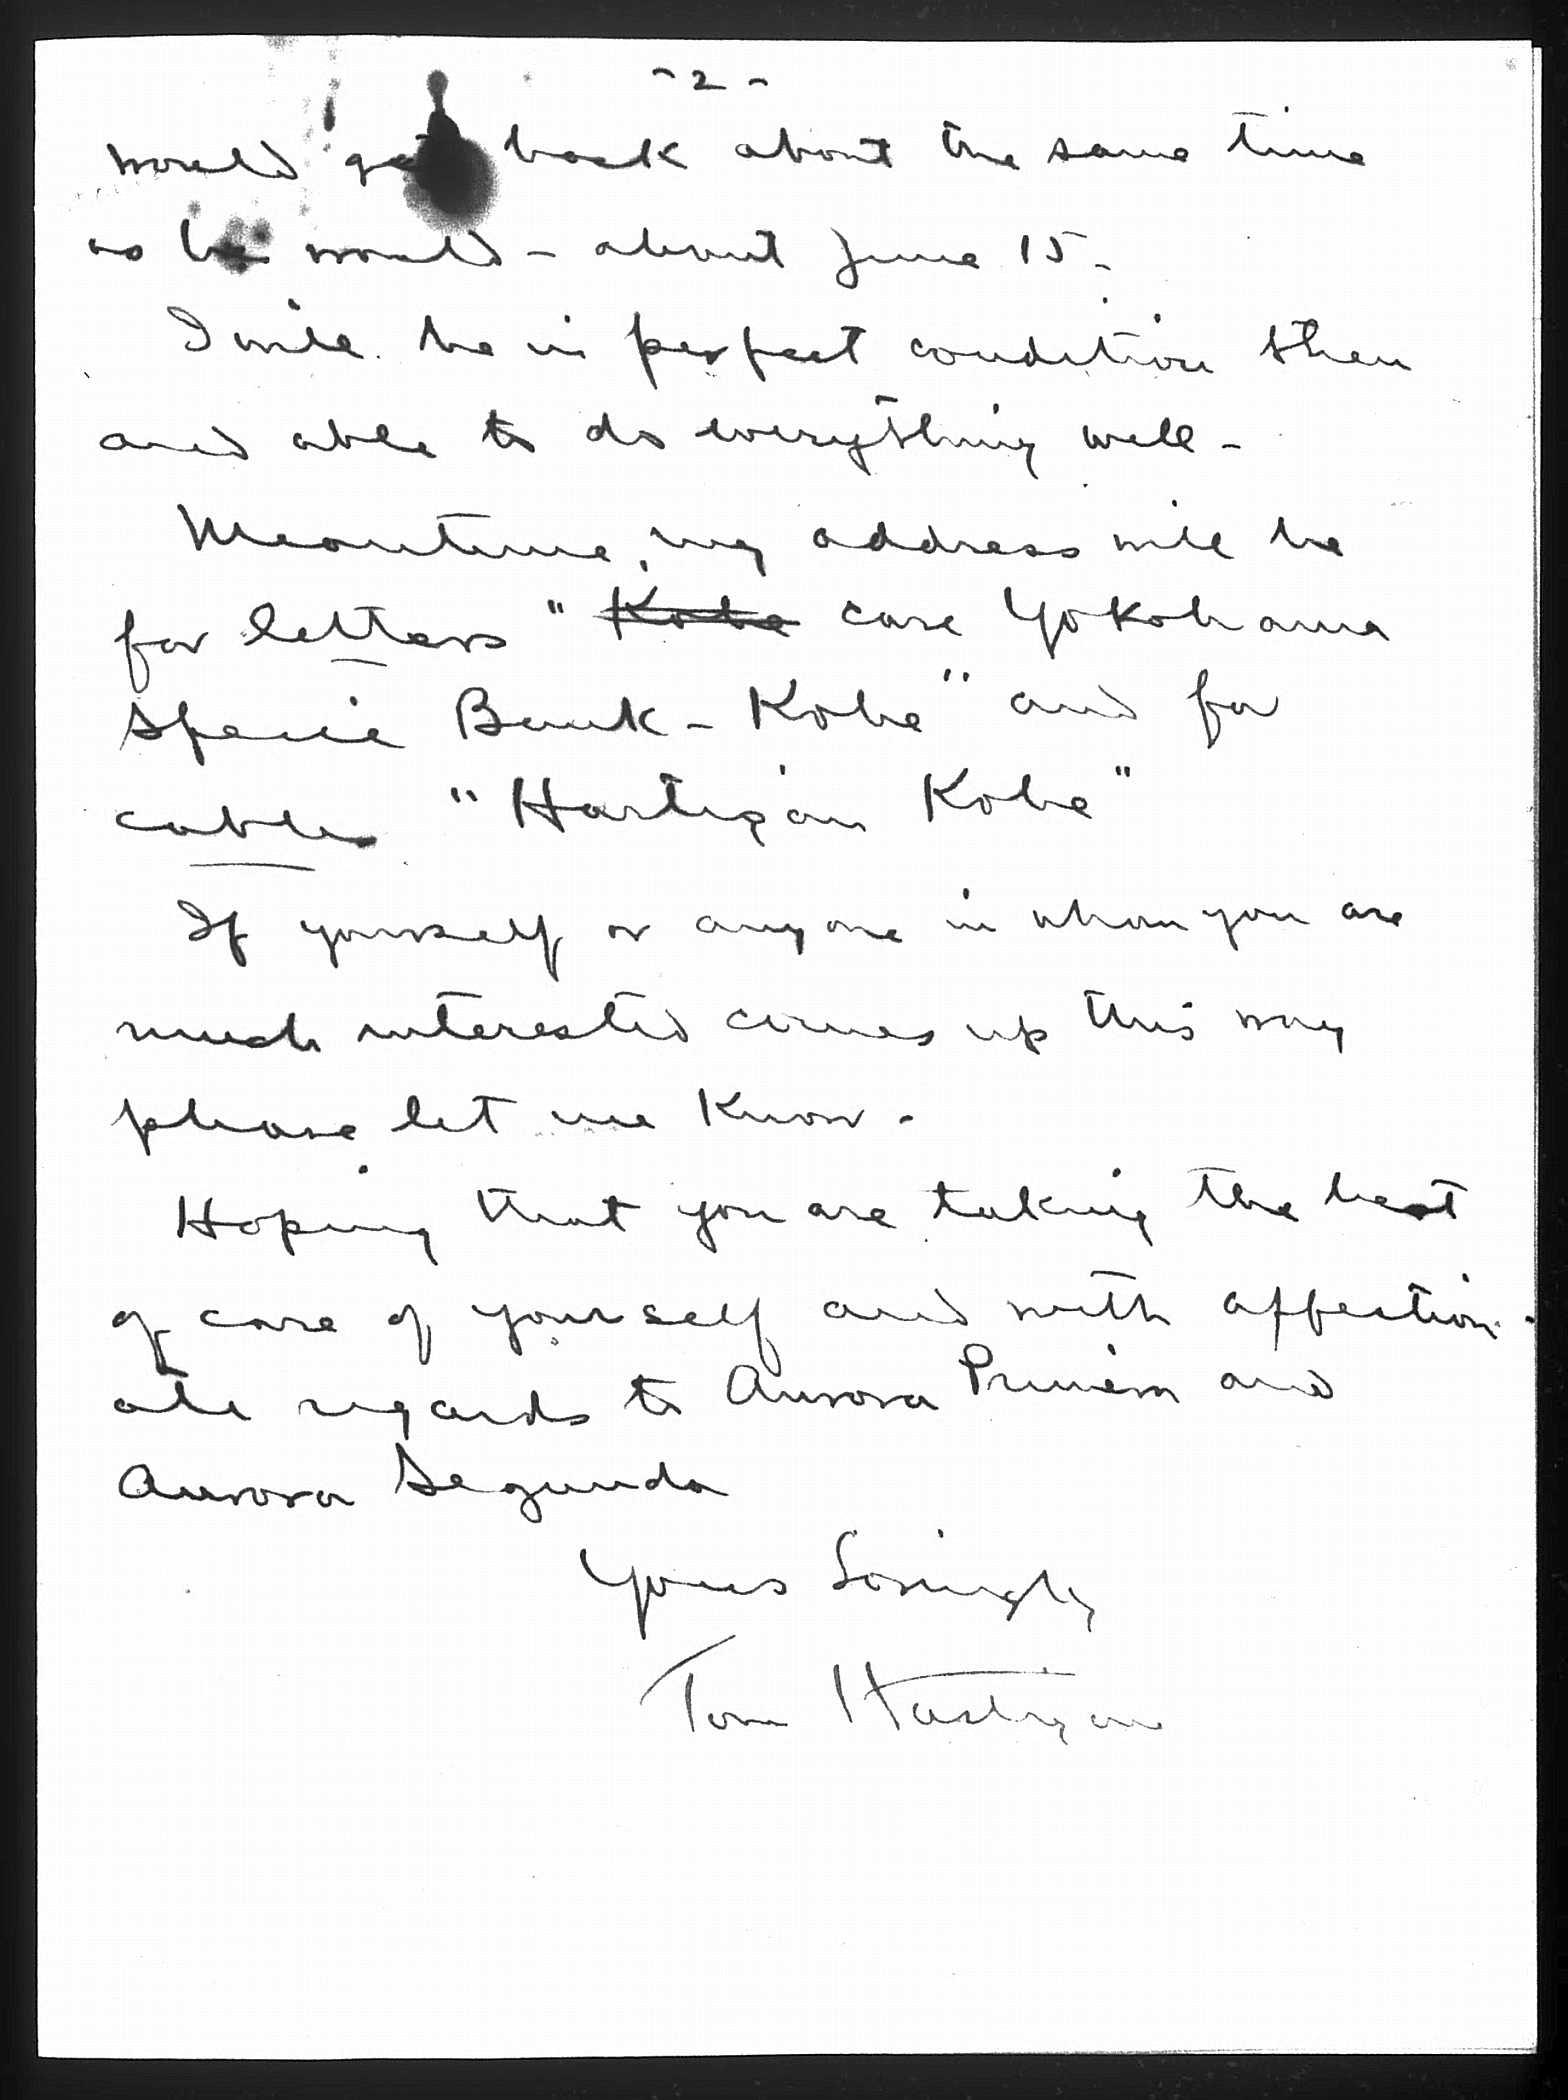 - 2 -
would get back about the same time
as he would - about June 15 -
I will be in perfect condition then
and able to do everything well -
Meantime, my address will be
for letters " Kobe care Yokohama
Specie Bank - Kobe" and for
cables "Hartigan Kobe"
If yourself or anyone in whom you are
much interested comes up this way
please let me know .
Hoping that you are taking the best
of care of yourself and with affection-
ate regards to Aurora Primera and
Aurora Segunda
Yours Lovingly
Tom Hartigan